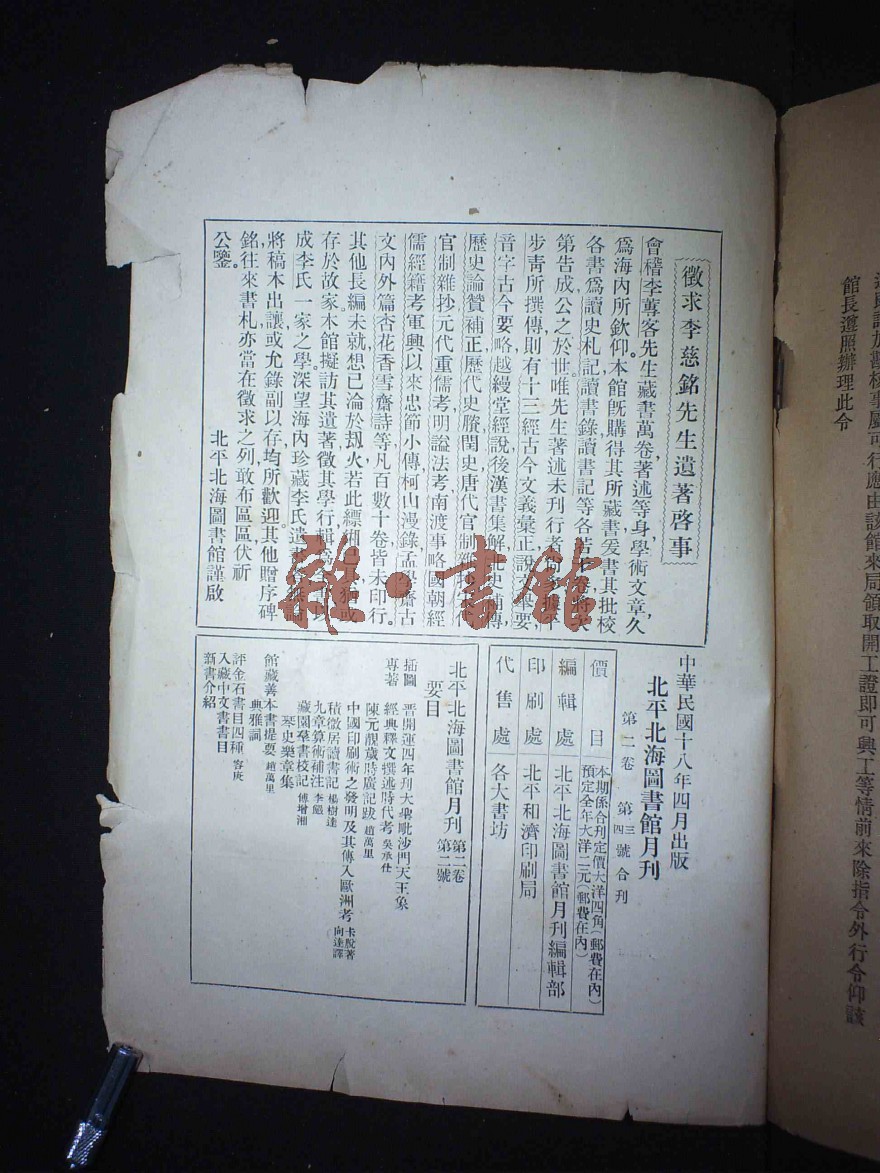 徵求李慈銘先生遺著啓事
會稽李蓴客先生藏書萬卷著述等身學術文章久
爲海內所欽仰本館旣購得其所藏書爰書其批校
各書爲讀史札記讀書錄讀書記等各若干卷將次
第告成公之於世唯先生著述未刊行者尙多據平
步靑所撰傳則有十三經古今文義彙正說文舉要
音字古今要略越縵堂經說後漢書集解北史補傳
歷史論贊補正歷代史賸閏史唐代官制雜抄宋代
官制雜抄元代重儒考明謚法考南渡事略國朝經
儒經籍考軍興以來忠節小傳柯山漫錄孟學齋古
文內外篇杏花香雪齋詩等凡百數十卷皆未印行。
其他長編未就想已淪於刼火若此縹緗
存於故家本館擬訪其遺著徵其學行輯爲
成李氏一家之學深望海內珍藏李氏遺著
將稿本出讓或允錄副以存均所歡迎其他贈序碑
銘往來書札亦當在徵求之列敢布區區伏祈
公鑒。
北平北海圖書館謹啟
中華民國十八年四月出版
北平北海圖書館月刊
第二卷 第三四號合刊
價目 本期係合刊定價大洋四角(郵費在內)
預定全年大洋二元(郵費在內)
編輯處 北平北海圖書館月刊編輯部
印刷處 北平和濟印刷局
代售處 各大書坊
北平北海圖書館月刊 第二卷第二號
要目
插圖 晋開運四年刊大聖毗沙門天王象
專著 經典釋文撰述時代考 吳承仕
陳元靚歲時廣記跋 趙萬里
中國印刷術之發明及其傳入歐洲考 卡脫著 向達譯
積微居讀書記 楊樹達
九章算術補注 李儼
藏園羣書校記 傅增湘
琴史樂章集
館藏善本書提要 趙萬里
典雅詞
評金石書目四種 容庚
入藏中文書書目
新書介紹
館長遵照辦理此令
可行應由該館來局領取開工證即可興工等情前來除指令外行令仰該
雜·書館